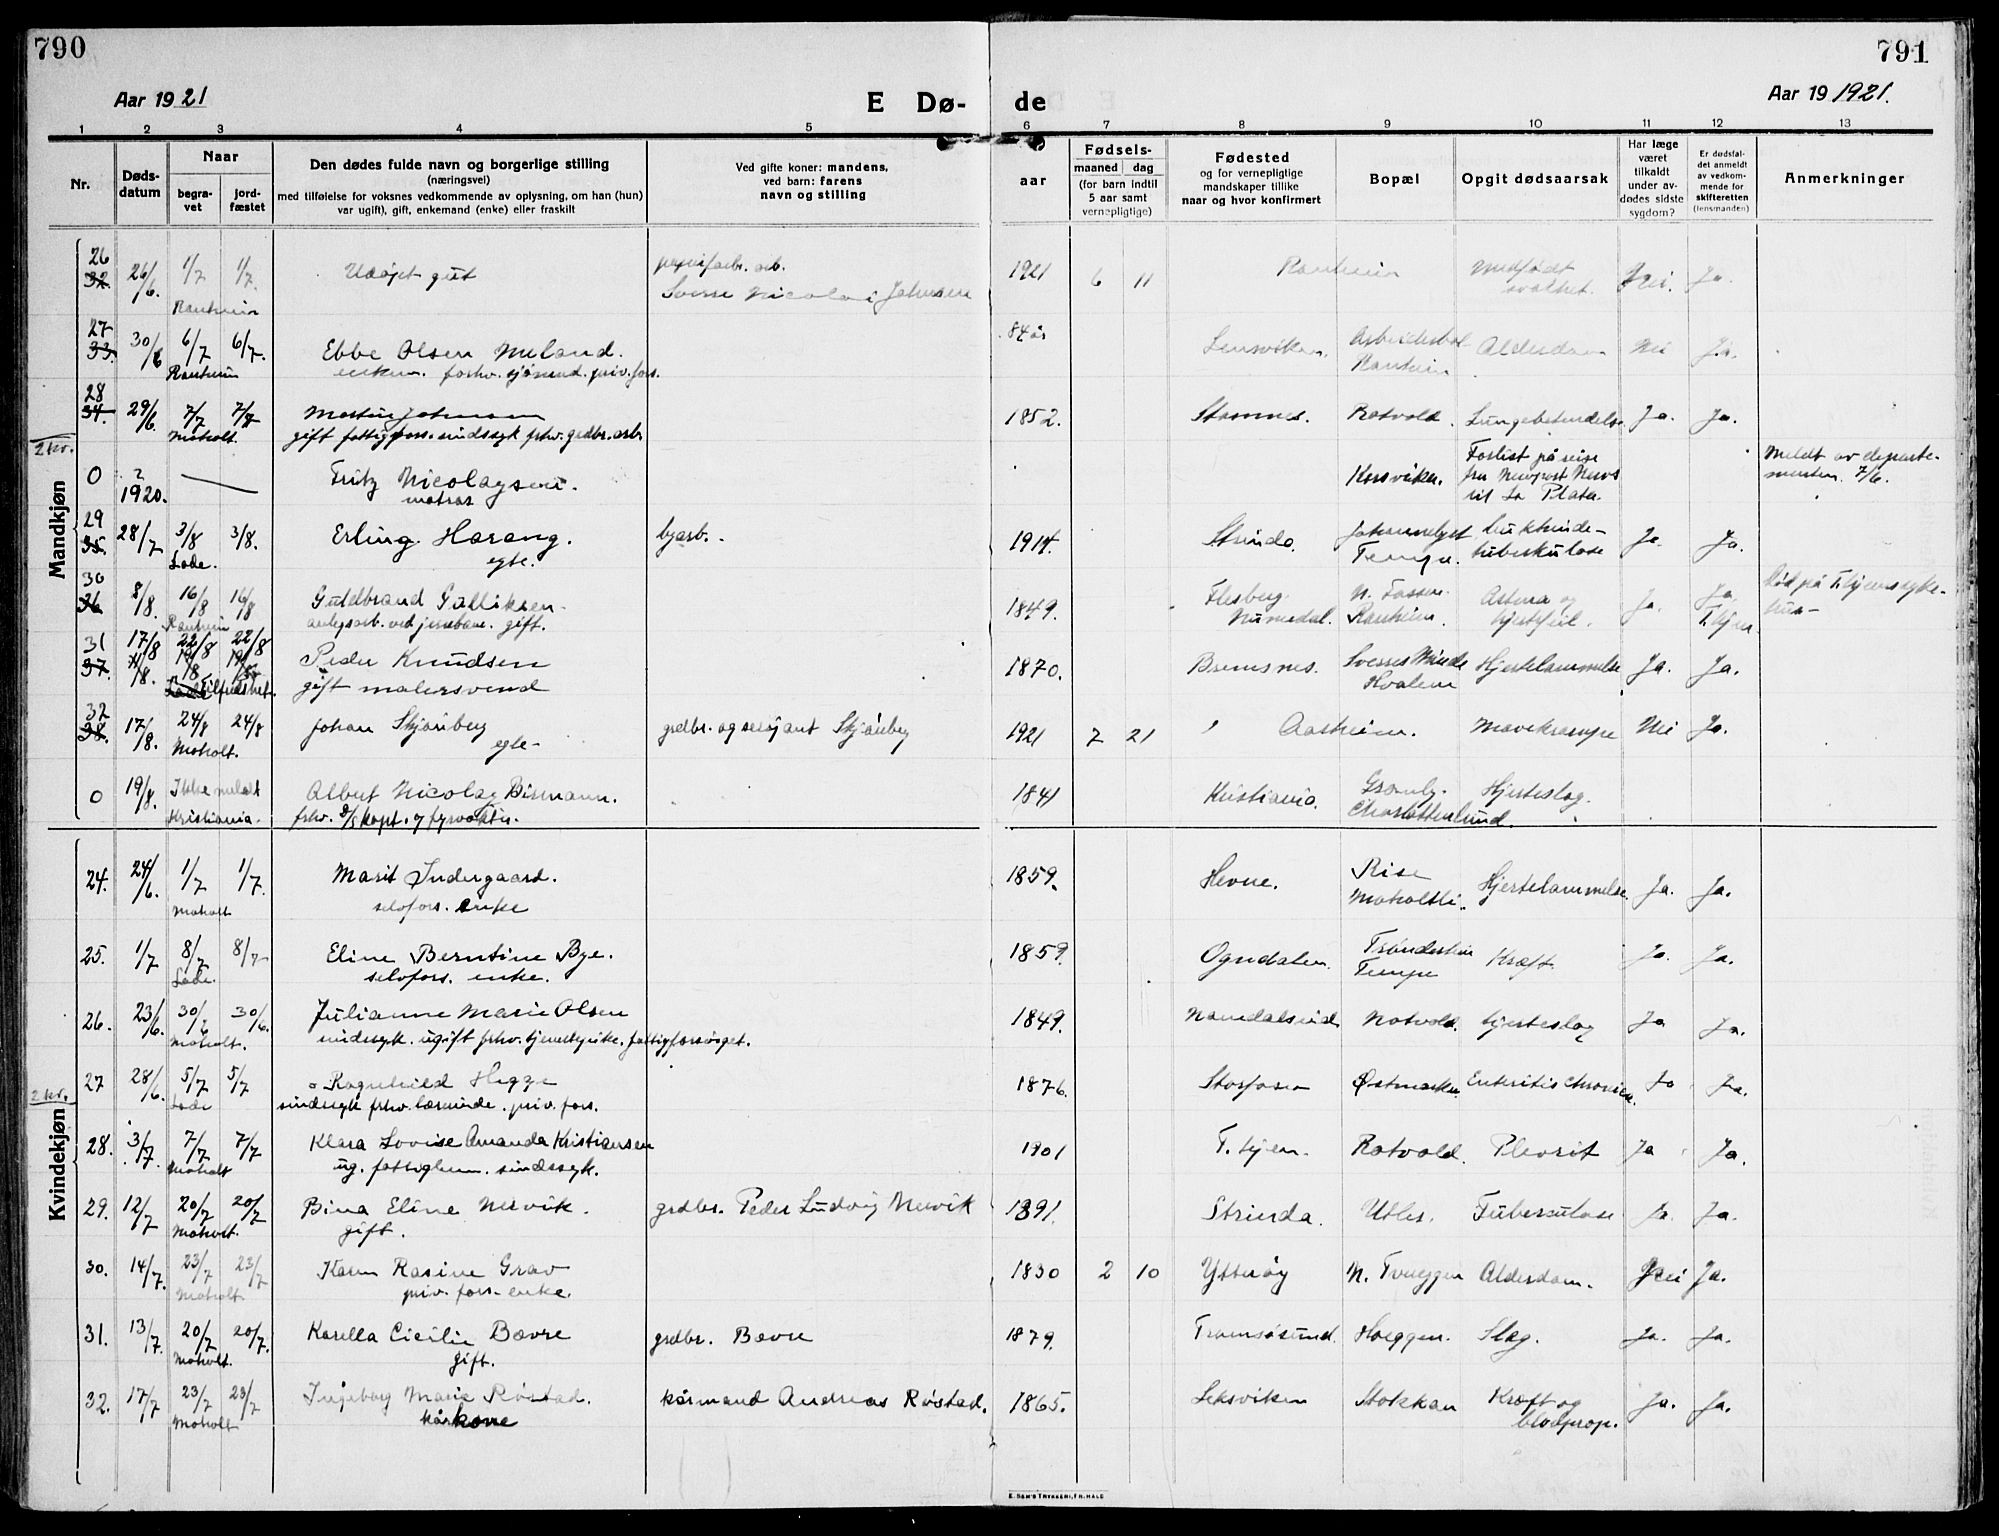 790
791
Aar 1921
E Dø-
de
Aar 19 1921.
1 2 3 4 5 6 7 8 9 10 11 12 13
Nr.
Døds-
datum
Naar
begra-
vet
jord-
fæstet
Den dødes fulde navn og borgerlige stilling
(næringsvei)
med tilføielse for voksnes vedkommende av oplysning, om han (hun)
var ugift), gift, enkemand (enke) eller fraskilt
Ved gifte koner: mandens,
ved barn: farens
navn og stilling
aar
Fødsels-
maaned dag
(for barn indtil
5 aar samt
vernepligtige)
Fødested
og for vernepligtige
mandskaper tillike
naar og hvor konfirmert
Bopæl
Opgit dødsaarsak
Har læge
været
tilkaldt
under av-
dødes sidste
sygdom?
Er dødsfal-
det anmeldt
av vedkom-
mende for
skifteretten
(lensmanden)
Anmerkninger
Mandkjøn
26
32. 26/6. 1/7 1/7. Udøpt gut 1921 6 11 Ranheim Medfødt svakhet. Nei. Ja.
Ranheim
Sverre Nicolai Johnsen
27
33. 30/6 6/7 6/7. Ebbe Olsen Meland. 84 år Lensviken. Ranheim Alderdom Nei Ja.
Ranheim enkem. forhv. sjømand. priv. fors.
28
34. 29/6. 7/7 7/7 1852. Stamnes. Rotvold. Lungebetændelse Ja. Ja.
Moholt. gift fattigfors. sindssyk frhv. grdbr. arb.
2 kv.
0 ? 1920. — Fritz Nicolaysen. matros Korsviken. Forlist på reise
fra Newport News
til La Plata.
Meldt av departe-
menten 7/6.
29
35. 28/7 3/8 3/8. Erling Harang. byarb. 1914. Strinda. Ja. Ja.
Lade. egte. Tempe. tuberkulose
30
36 8/8. 16/8 16/8 Guldbrand Gulliksen. 1849. Flesberg Astma og Ja. Ja
Ranheim anlegsarb. ved jernbane. gift. Numedal. Ranheim. hjertfeil. T.hjem
Død på T.hjems syke-
hus-
31 17/8 22/8 22/8
37. 11/8. 19/8 19/8 Peder Knudsen 1870. Bremsnes. Sverres Minde Hjertelammelse Ja. Ja.
Lade Tilfredshet. gift malersvend
32
38. 17/8. 24/8 24/8 Johan Skjønberg grdbr. og sersjant Skjønberg 1921 7 21 Aasheim. Mavekrampe Nei Ja.
Moholt. egte-
0 19/8. Ikke meldt Albert Nicolay Birmann. 1841 Kristiania. Hjerteslag.
Kristiania. Charlottenlund.
Kvindekjøn
24. 24/6. 1/7 1/7. Marit Indergaard. 1859. Hevne. Rise Hjertelammelse. Ja. Ja.
Moholt selvfors. enke Moholtli.
25. 1/7 8/7 8/7 Eline Berntine Bye. 1859. Ogndalen. Kræft. Ja. Ja.
Lade. selvfors. enke. Tempe
26. 23/6. 30/6 30/6. Julianne Marie Olsen 1849. Namdalseid Rotvold. hjerteslag Ja Ja.
Moholt. sindssyk. ugift frhv. tjenestepike. fattigforsørget.
2 kv.
27 28/6. 5/7 5/7 Ragnhild Hegge 1876. Storfosen Østmarken Enteritis chronica. Ja Ja.
Lade sindssyk frhv. lærerinde. priv. fors.
28. 3/7. 7/7 7/7 Klara Lovise Amanda Kristiansen 1901 T.hjem. Rotvold. Plevrit Ja Ja.
Moholt ug. fattiglem. sindssyk.
29. 12/7 20/7 20/7 Bina Eline Nervik. grdbr. Peder Ludvig Nervik 1891. Strinda. Utler. Tuberculose Ja. Ja.
Moholt. gift.
30. 14/7. 23/7 23/7 Karen Rasine Grav 1830 2 10 Ytterøy N. Tvereggen Alderdom. Nei Ja.
Moholt. priv. fors. enke.
31. 13/7. 20/7 20/7. Karella Cicilie Bævre grdbr. Bævre 1879. Tromsøsund. Hoeggen. Slag. Ja. Ja.
Moholt. gift.
32. 17/7 23/7 23/7 Ingeborg Marie Røstad. kårmand Andreas Røstad. 1865. Leksviken Stokkan Kræft og Ja. Ja.
Moholt kårkone blodprop.
E. SEM'S TRYKKERI, FR.HALD